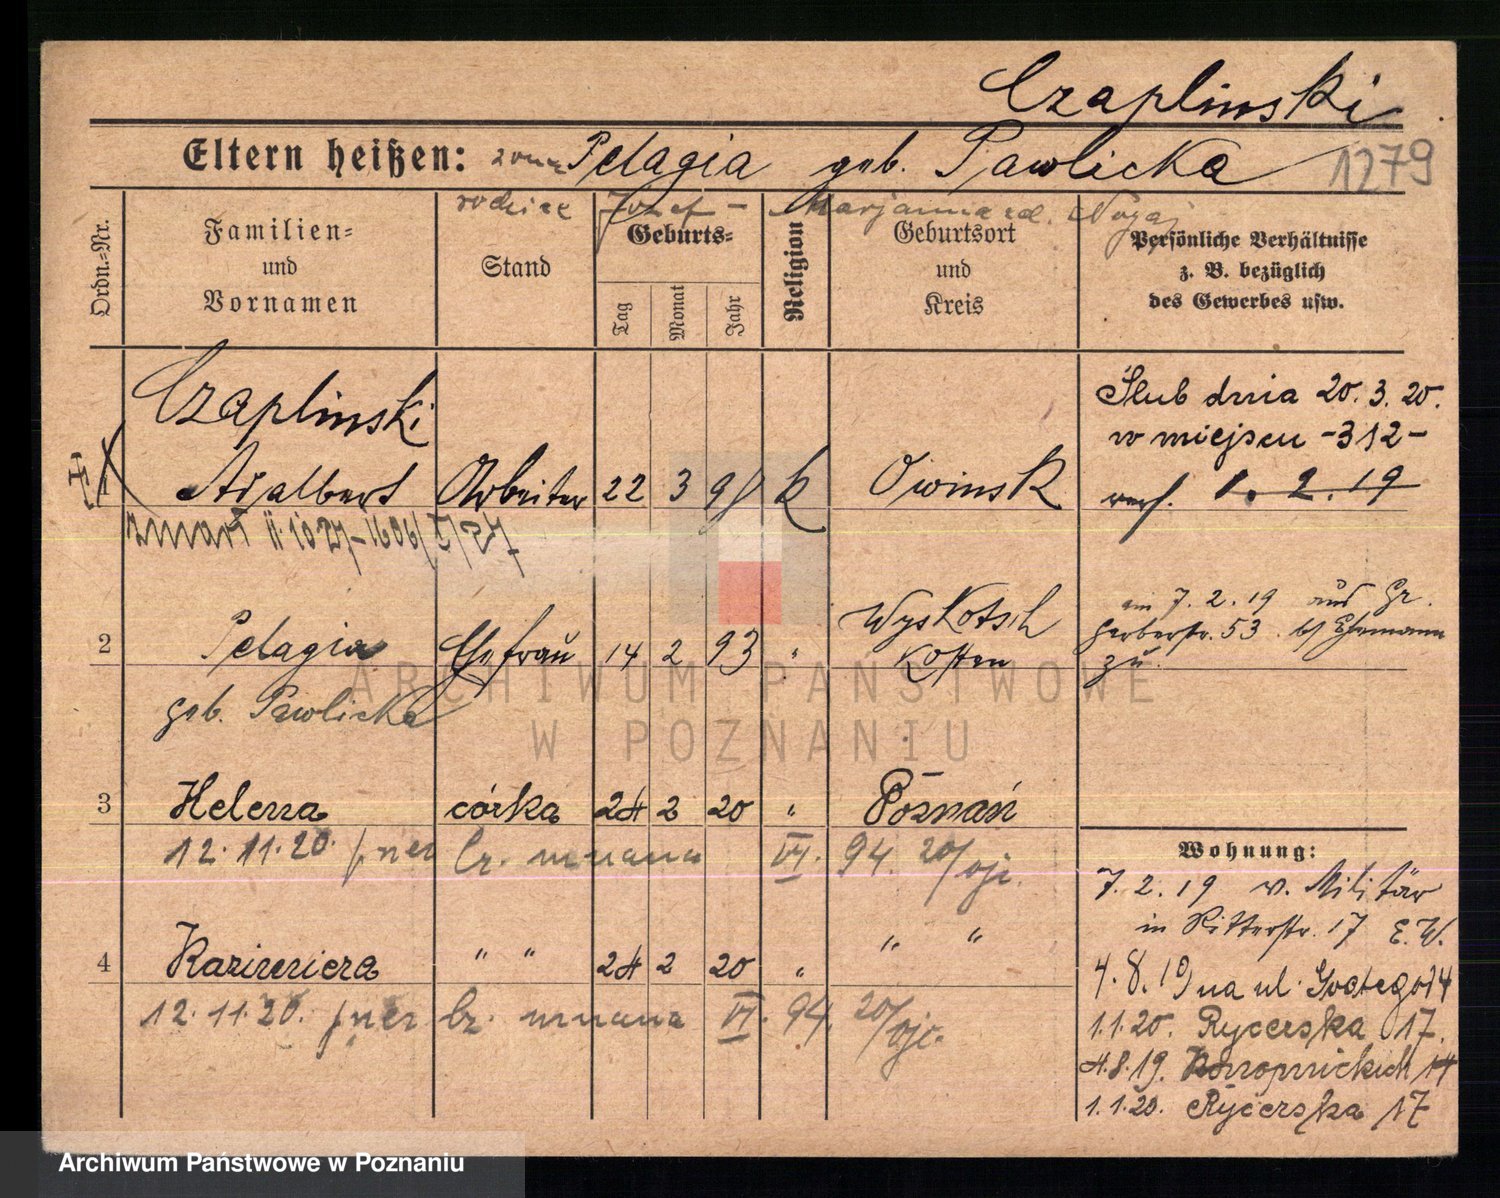 Czaplinski
Eltern heißen: żona Pelagia geb. Pawlicka 1279
rodzice Józef - Marjanna zd. Nogaj
Ordn.-Nr.
Familien-
und
Vornamen
Stand
Geburts-
Tag
Monat
Jahr
Religion
Geburtsort
und
Kreis
Persönliche Verhältnisse
z. B. bezüglich
des Gewerbes usw.
Czaplinski
Adalbert Arbeiter 22 3 98 K Owinsk
Ślub dnia 20.3.20.
w miejscu -312-
verh. 1. 2. 19
zmarł
2 Pelagia Ehefrau 14 2 93 " Wyskotsch
Kosten
geb. Pawlicka
am 7.2.19 aus Gr.
Gerberstr. 53. b/ Ehemann
zu.
3 Helena córka 24 2 20 " Poznań
12.11.20. VI. 94. 20/
4 Kazimiera " " 24 2 20 " " "
12.11.20. VI. 94. 20/
Wohnung:
7.2.19 v. Militär
in Ritterstr. 17 E.W.
4.8.19 na ul. 14
1.1.20. Rycerska 17.
4.8.19. 14
1.1.20. Rycerska 17
ARCHIWUM PAŃSTWOWE
W POZNANIU
Archiwum Państwowe w Poznaniu